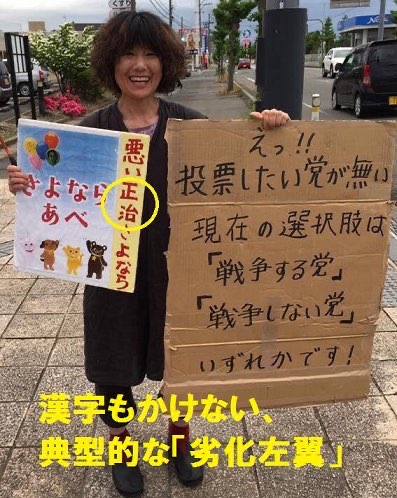 くすり
悪い正治さよなら
さよなら
あべ
えっ!!
投票したい党が無い
現在の選択肢は
「戦争する党」
「戦争しない党」
いずれかです!
漢字もかけない、
典型的な「劣化左翼」